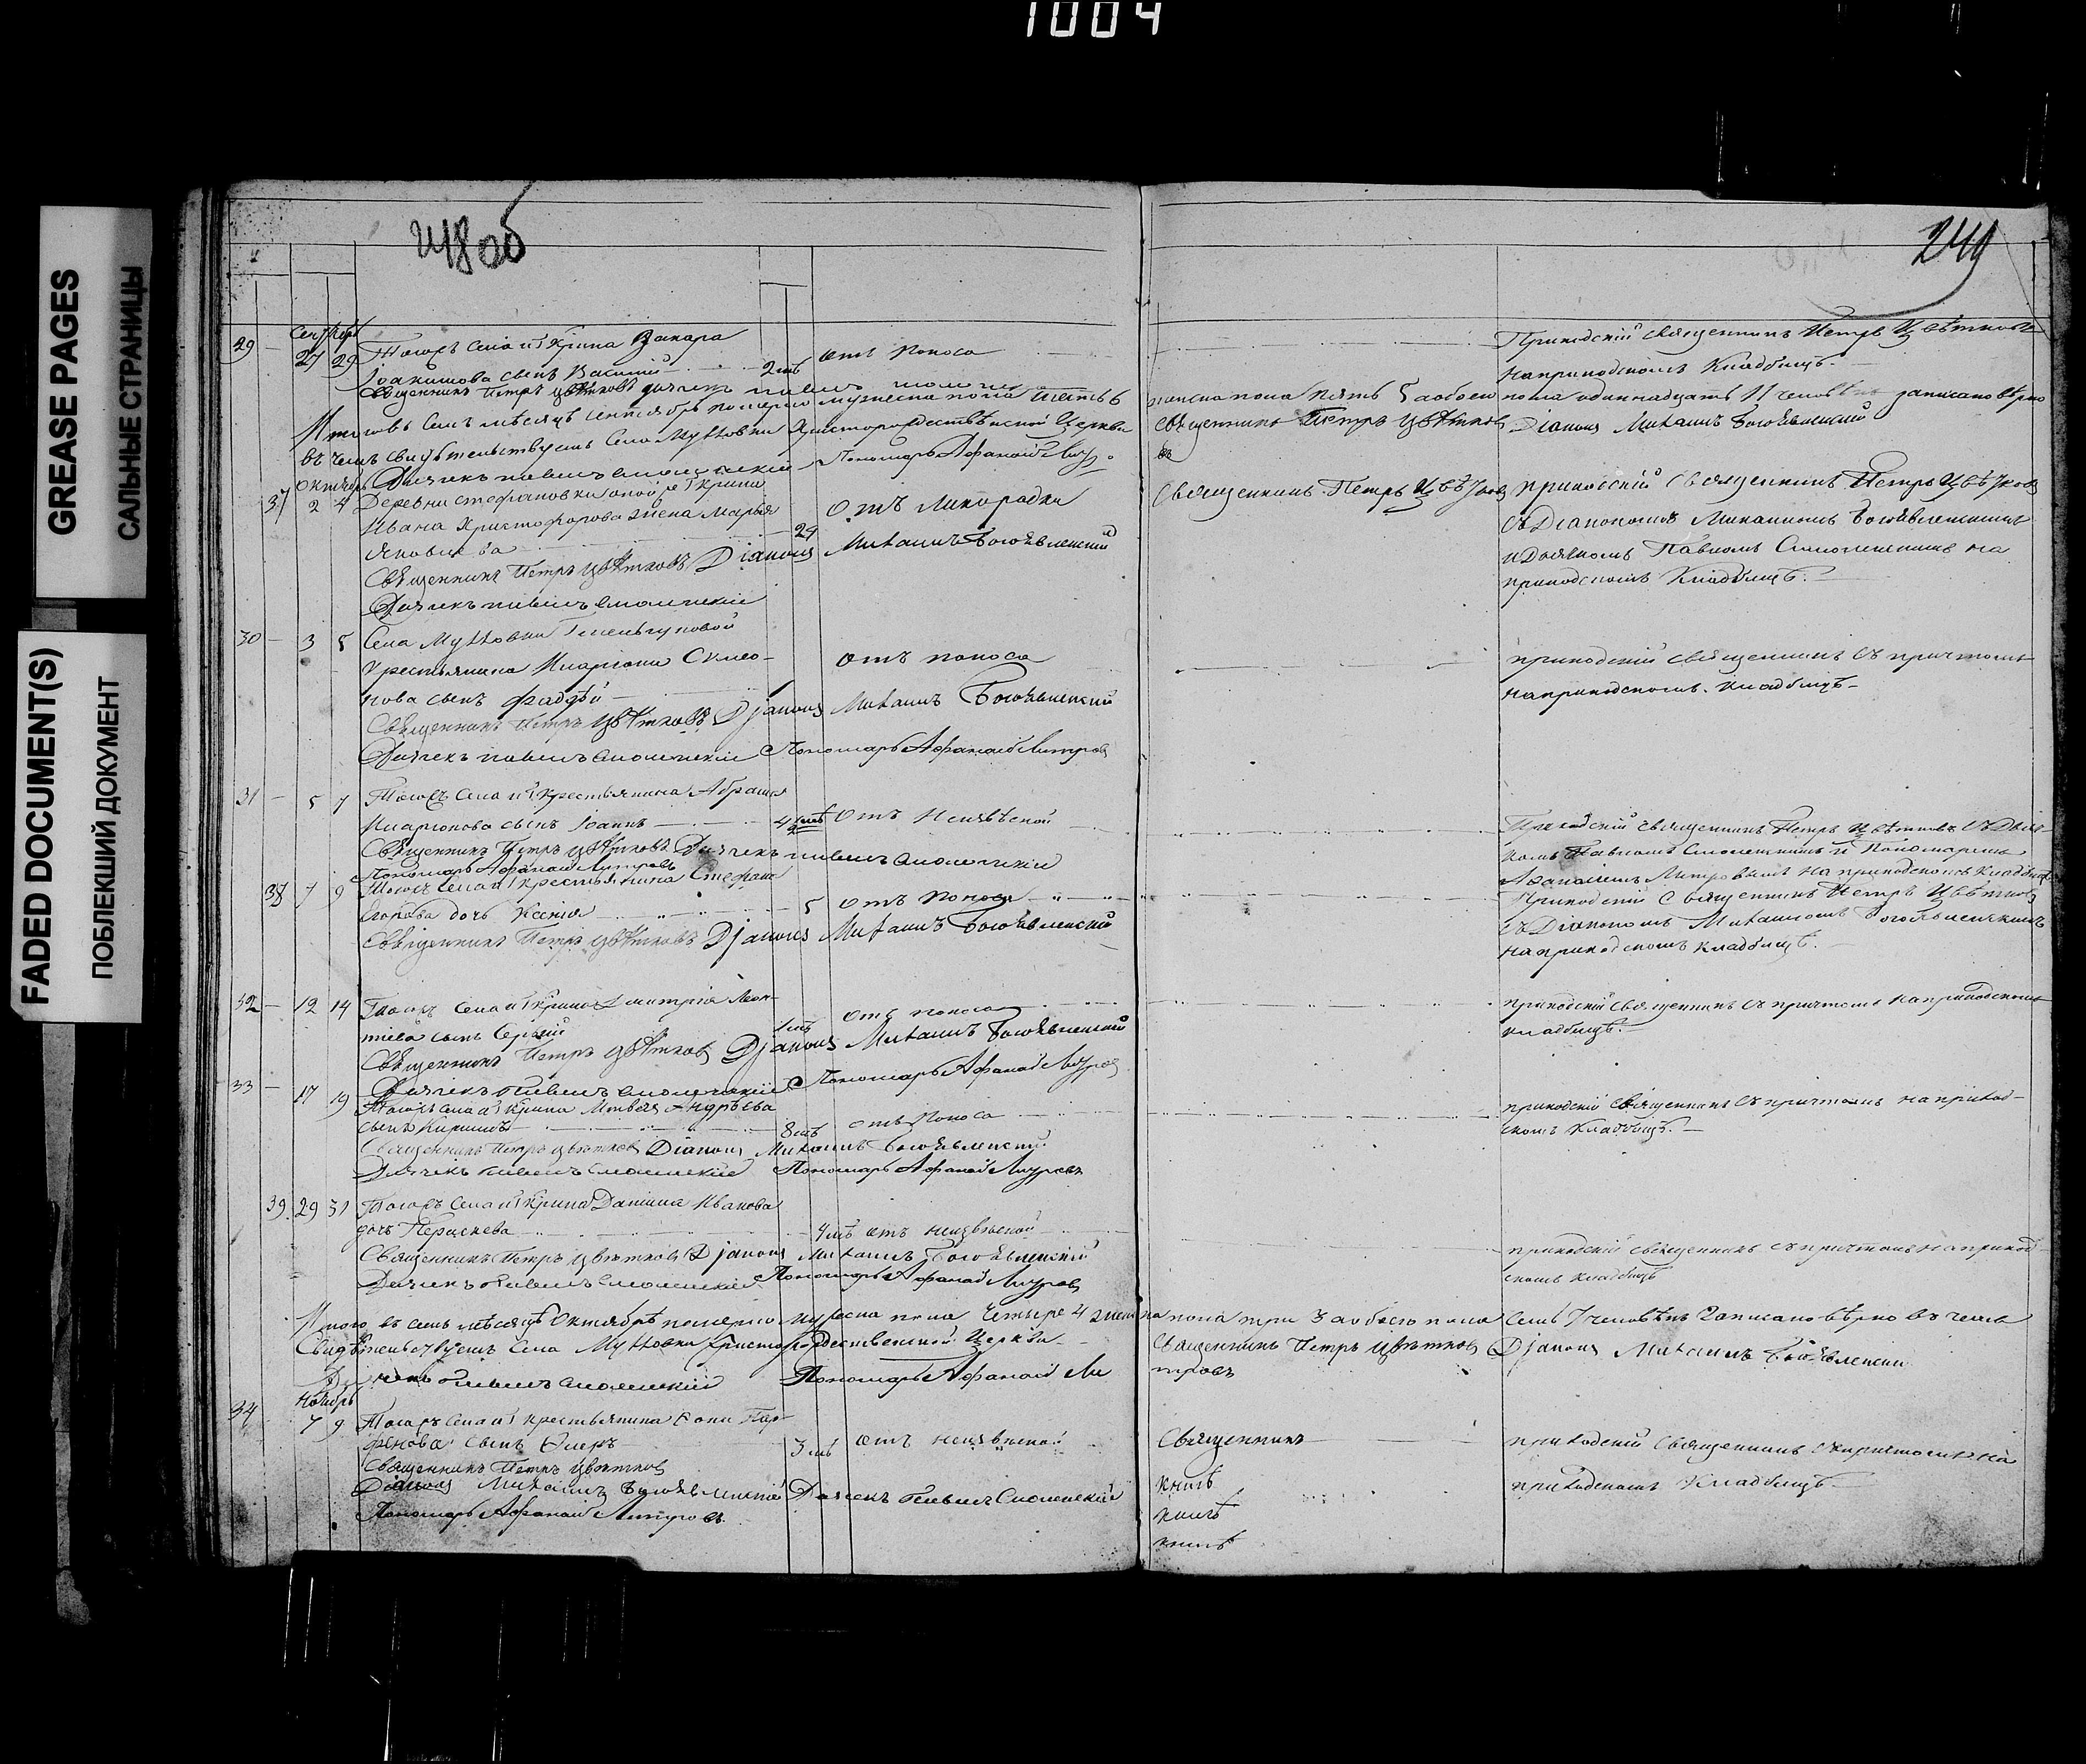 1004
GREASE PAGES
САЛЬНЫЕ СТРАНИЦЫ
FADED DOCUMENT(S)
ПОБЛЕКШИЙ ДОКУМЕНТ
248 об
249
29 27 29 Тогожъ села и г крина Захара
Іоакимова сынъ Василій 2 лѣт отъ поноса
Приходскій священникъ Петръ Цвѣтковъ
на приходскомъ кладбищѣ.
Священникъ Петръ Цвѣтковъ дьячекъ
Итого въ семъ мѣсяцѣ сентябрѣ померло мужеска пола шесть 6 женска пола пять 5 а обоего пола одиннадцать 11 человѣкъ записано вѣрно
въ чемъ свидѣтельствуемъ села Христорождественской Церкви Священникъ Петръ Цвѣтковъ Діаконъ Михаилъ Богоявленский
Дьячекъ Павелъ Смоленскій Пономарь Афанасій
Октябрь
37 2 4 Деревни Стефановки
Ивана Христофорова жена Марья
Яковлева 29 отъ лихорадки
Священникъ Петръ Цвѣтковъ
приходскій Священникъ Петръ Цвѣтковъ
съ Діакономъ Михаиломъ Богоявленскимъ
и Дьячкомъ Павломъ Смоленскимъ на
приходскомъ кладбищѣ.
Священникъ Петръ Цвѣтковъ Діаконъ Михаилъ Богоявленский
Дьячекъ Павелъ Смоленскій
30 3 5 Села
крестьянина Иларіона Симео-
нова сынъ Фаддѣй отъ поноса
приходскій священникъ съ причтомъ
на приходскомъ кладбищѣ
Священникъ Петръ Цвѣтковъ Діаконъ Михаилъ Богоявленский
Дьячекъ Павелъ Смоленскій Пономарь Афанасій Митровъ
31 5 7 Тогожъ села и г крестьянина Абрама
Иларіонова сынъ Іоаннъ 4 отъ неизвѣсной
Приходскій священникъ Петръ Цвѣтковъ съ Дьяч-
комъ Павломъ Смоленскимъ и Пономаремъ
Афанасіемъ Митровымъ на приходскомъ кладбищѣ
Священникъ Петръ Цвѣтковъ Дьячекъ Павелъ Смоленскій
Пономарь Афанасій Митровъ
38 7 9 Тогожъ села и г крестьянина Стефана
Егорова дочь Ксенія 5 отъ поноса
Приходскій Священникъ Петръ Цвѣтковъ
съ Діакономъ Михаиломъ Богоявленскимъ
на приходскомъ кладбищѣ.
Священникъ Петръ Цвѣтковъ Діаконъ Михаилъ Богоявленский
32 12 14 Тогожъ села и г крина Дмитрія Леон-
тіева сынъ Сергѣй отъ поноса
приходскій священникъ съ причтомъ на приходскомъ
кладбищѣ.
Священникъ Петръ Цвѣтковъ Діаконъ Михаилъ Богоявленский
Дьячекъ Павелъ Смоленскій Пономарь Афанасій Митровъ
33 17 19 Тогожъ села и г крина Матвѣя Андрѣева
сынъ Кириллъ 8 лѣт отъ поноса
приходскій священникъ съ причтомъ на приход-
скомъ кладбищѣ.
Священникъ Петръ Цвѣтковъ Діаконъ Михаилъ Богоявленский
Дьячекъ Павелъ Смоленскій Пономарь Афанасій Митровъ
39 29 31 Тогожъ села и г крина Даніила Иванова
дочь Параскева 4 отъ неизвѣсной
приходскій священникъ съ причтомъ на приход
скомъ кладбищѣ
Священникъ Петръ Цвѣтковъ Діаконъ Михаилъ Богоявленский
Дьячекъ Павелъ Смоленскій Пономарь Афанасій Митровъ
Итого въ семъ мѣсяцѣ Октябрѣ померло мужеска пола четыре 4 женска пола три 3 а обоего пола семь 7 человѣкъ записано вѣрно въ чемъ
свидѣтельствуемъ села Христорождественской Церкви Священникъ Петръ Цвѣтковъ Діаконъ Михаилъ Богоявленский
Дьячекъ Павелъ Смоленскій Пономарь Афанасій Ми тровъ
Ноябрь
34 7 9 Тогожъ села и г крестьянина Пар-
фенова сынъ 3 отъ неизвѣсной
Священникъ
приходскій священникъ съ причтомъ на
приходскомъ кладбищѣ
Священникъ Петръ Цвѣтковъ
Діаконъ Михаилъ Богоявленский Дьячекъ Павелъ Смоленскій
Пономарь Афанасій Митровъ